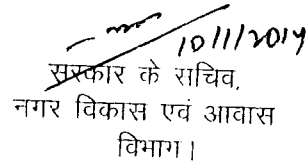 10/1/2014
सरकार के सचिव,
नगर विकास एवं आवास
विभाग।